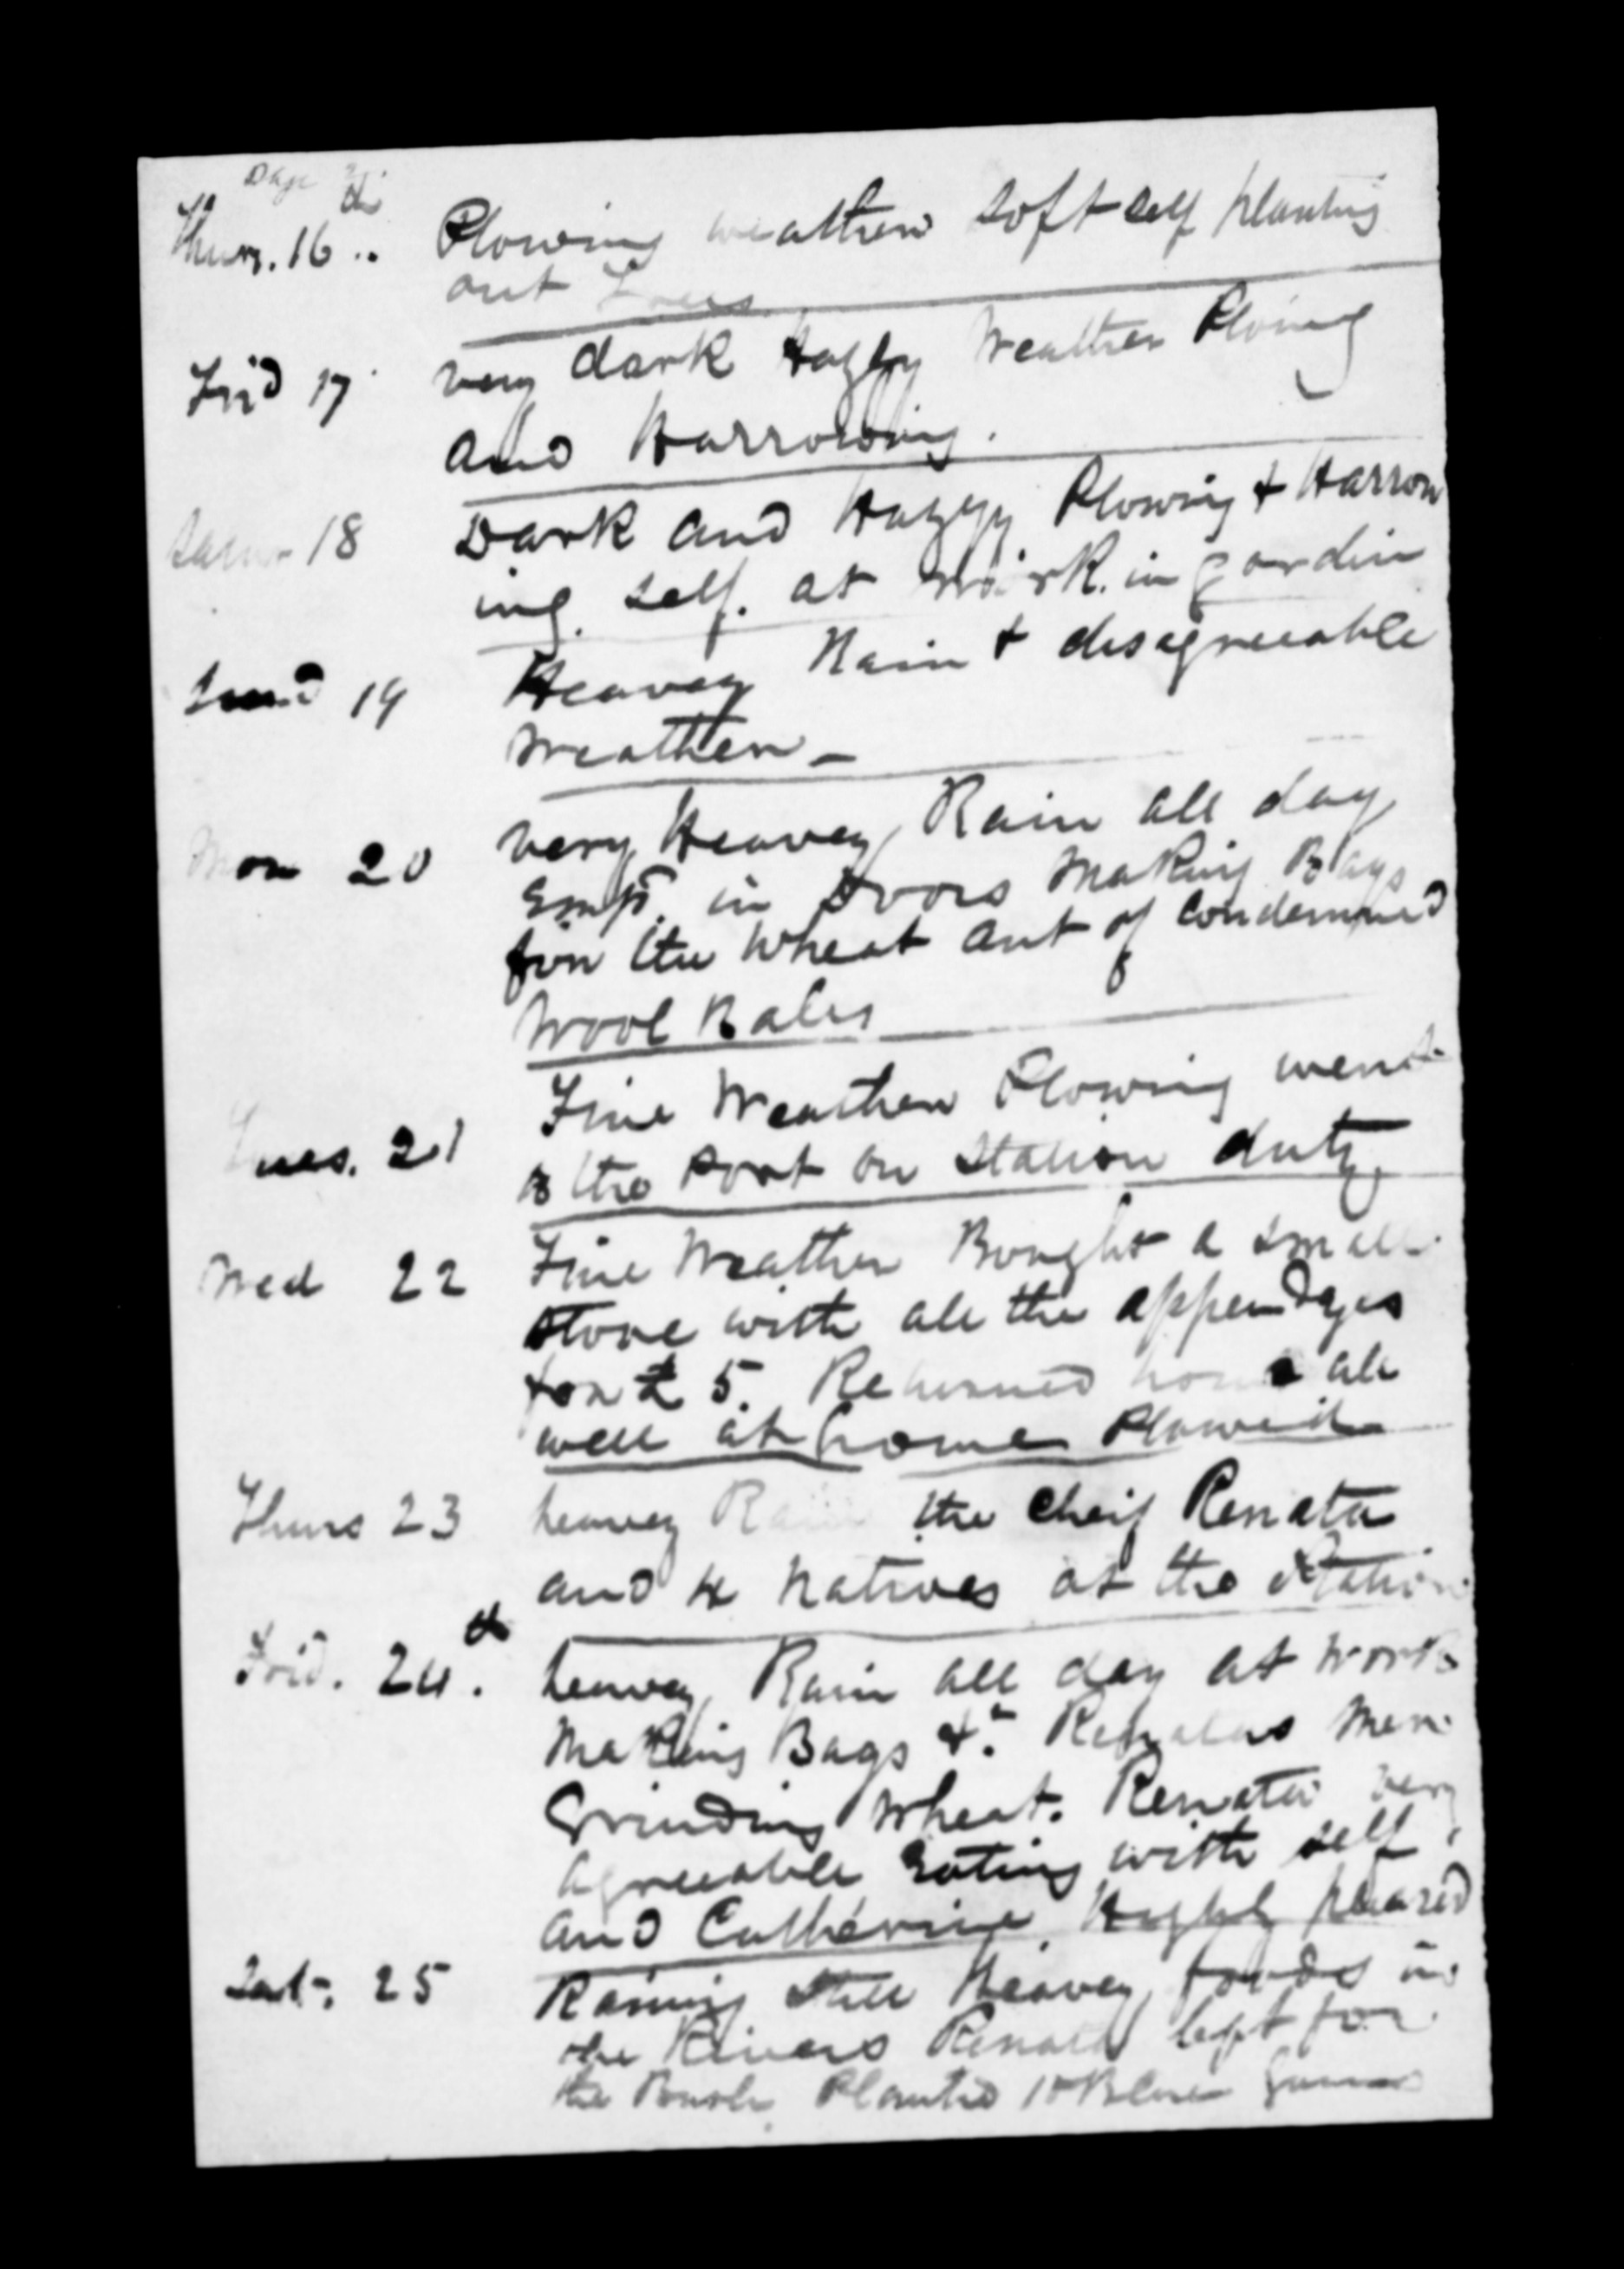 Days
Thurs. 16th Plowing weather soft self planting
out Trees
Frid 17 very dark Hazey Weather Ploing
and Harrowing.
Satur 18 Dark and Hazey Plowing & Harrow
ing. self. at work. in gardin
Sund 19 Heavey Rain & disagreeable
Weather -
Mon 20 very Heavey Rain all day
Empd. in Doors Making Bags
for the Wheat out of Condemned
Wool Bales
Tues. 21 Fine Weather Plowing went
to the Port on Station duty
Wed 22 Fine Weather Bought a small
stove with all the appendages
for £ 5. Returned home all
well at home Plowed
Thurs 23 heavey Rain the Cheif Renata
and 4 Natives at the Station
Frid. 24th. heavey Rain all day at Work
Making Bags &c Renatas Men
Grinding Wheat. Renata very
agreeable Eating with self
and Catherine. Highly pleased
Sat. 25 Raining still Heavey, floods in
the Rivers Renata left for
the Bush. Planted 18 Blue Gums